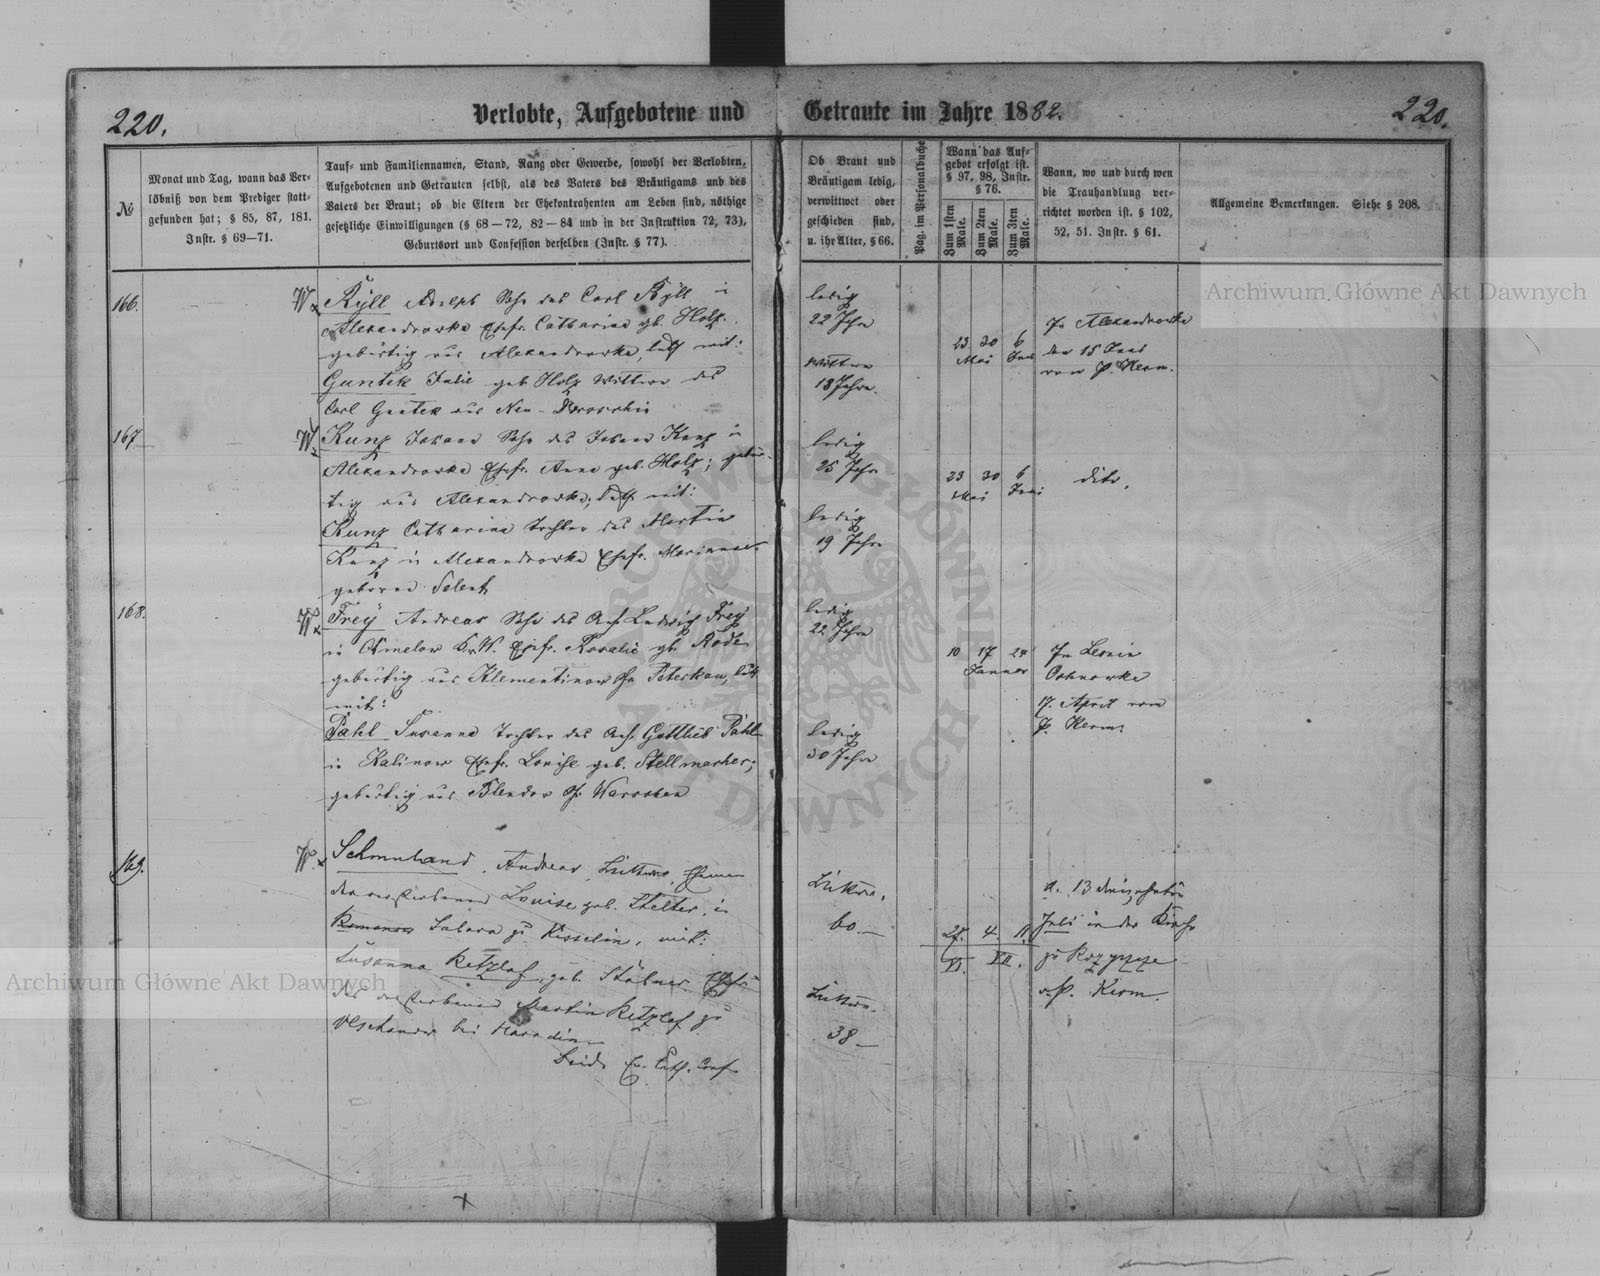 220.
Verlobte, Aufgebotene und Getraute im Jahre 1882.
220.
№
Monat und Tag, wann das Ver-
löbniß von dem Prediger statt-
gefunden hat; § 85, 87, 181.
Instr. § 69—71.
Tauf- und Familiennamen, Stand, Rang oder Gewerbe, sowohl der Verlobten,
Aufgebotenen und Getrauten selbst, als des Vaters des Bräutigams und des
Vaters der Braut; ob die Eltern der Ehekontrahenten am Leben sind, nöthige
gesetzliche Einwilligungen (§ 68—72, 82—84 und in der Instruktion 72, 73),
Geburtsort und Confession derselben (Instr. § 77).
Ob Braut und
Bräutigam ledig,
verwittwet oder
geschieden sind,
u. ihr Alter, § 66.
Pag. im Personalbuche
Wann das Auf-
gebot erfolgt ist.
§ 97, 98, Instr.
§ 76.
Zum 1sten
Male.
Zum 2ten
Male.
Zum 3ten
Male.
Wann, wo und durch wen
die Trauhandlung ver-
richtet worden ist. § 102,
52, 51. Instr. § 61.
Allgemeine Bemerkungen. Siehe § 208.
166.
W
Ryll Adolph Sohn des Carl Ryll in
Alexandrowka Ehefr. Catharina gb. Holz.
gebürtig aus Alexandrowka, luth mit:
Guntek Julie geb Holz Wittwe des
Carl Guntek aus Neu-
ledig
22 Jahre
Wittwe
18 Jahre.
23 30 6
Mai Juni
In Alexandrowka
den 15 Juni
von P. Kerm.
167
W
Kunz Johann Sohn des Johann Kunz in
Alexandrowka Ehefr. Anna geb. Holz; gebür-
tig aus Alexandrowka, luth mit:
Kunz Catharina Tochter des Martin
Kunz in Alexandrowka Ehefr. Marianna
geborne Selent
ledig
25 Jahre
ledig
19 Jahre
23 30 6
Mai Juni
dito.
168.
W
Frey Andreas Sohn des Ludwig Frey
in Chmelow Ehefr. Rosalie gb. Rode
gebürtig aus Klementinow Peterkau, luth
mit:
Pahl Susanna Tochter des Gottlieb Pahl
in Kalinow Ehefr. Louise geb. Stellmacher;
gebürtig aus Blendow Warschau
ledig
22 Jahre
ledig
30 Jahre
10 17 24
Januar
In
17. April von
P. Kerm.
169.
W.
Schmuland, Andreas, Wittwer, Ehemann
der verstorbenen Louise geb. Stelter, in
zu Kisselin, mit:
Susanna Retzlaf, geb. Ehefr.
des verstorbenen Martin Retzlaf zu
bei
Beide ev. luth. Conf.
Wittwer,
60.—
Wittwe.
38—
27. 4. 11.
VI. VII.
d. 13 dreizehnten
Juli in der Kirche
zu Rozyszcze
v. P. Kerm.
Archiwum Główne Akt Dawnych
Archiwum Główne Akt Dawnych
ARCHIWUM GŁÓWNE AKT DAWNYCH